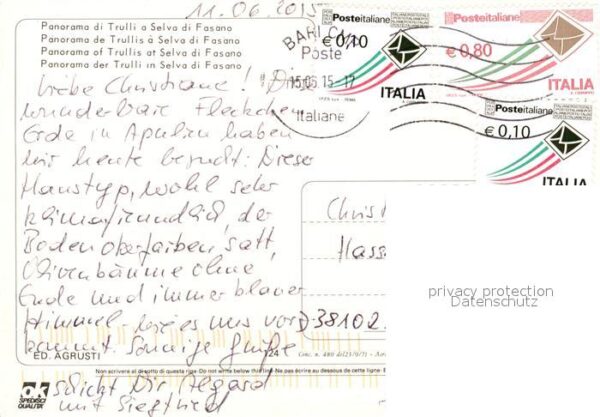 11.06.2015
Panorama di Trulli a Selva di Fasano
Panorama de Trullis à Selva di Fasano
Panorama of Trullis at Selva di Fasano
Panorama der Trulli in Selva di Fasano
Liebe Christiane! Dieses
wunderbare Fleckchen
Erde in Apulien haben
wir heute besucht: Dieser
Haustyp, wohl sehr
klimafreundlich, der
Boden oberfarben satt,
Olivenbäume ohne
Ende und immer blauer
Himmel, wie es uns vor-
kommt. Sonnige Grüße
schickt Dir Irmgard
mit Siegfried
BARI
Poste
15.06.15-17
Italiane
Posteitaliane
€0,10
ITALIA
Posteitaliane
€0,80
ITALIA
Posteitaliane
€0,10
ITALIA
Christ
Hass
D-38102
privacy protection
Datenschutz
ED. AGRUSTI
124
Conc. n. 480
Non scrivere al disotto di questa riga - Do not write below this line - Ne pas écrire au dessous de cette ligne
OK
SPEDISCI
QUALITA'